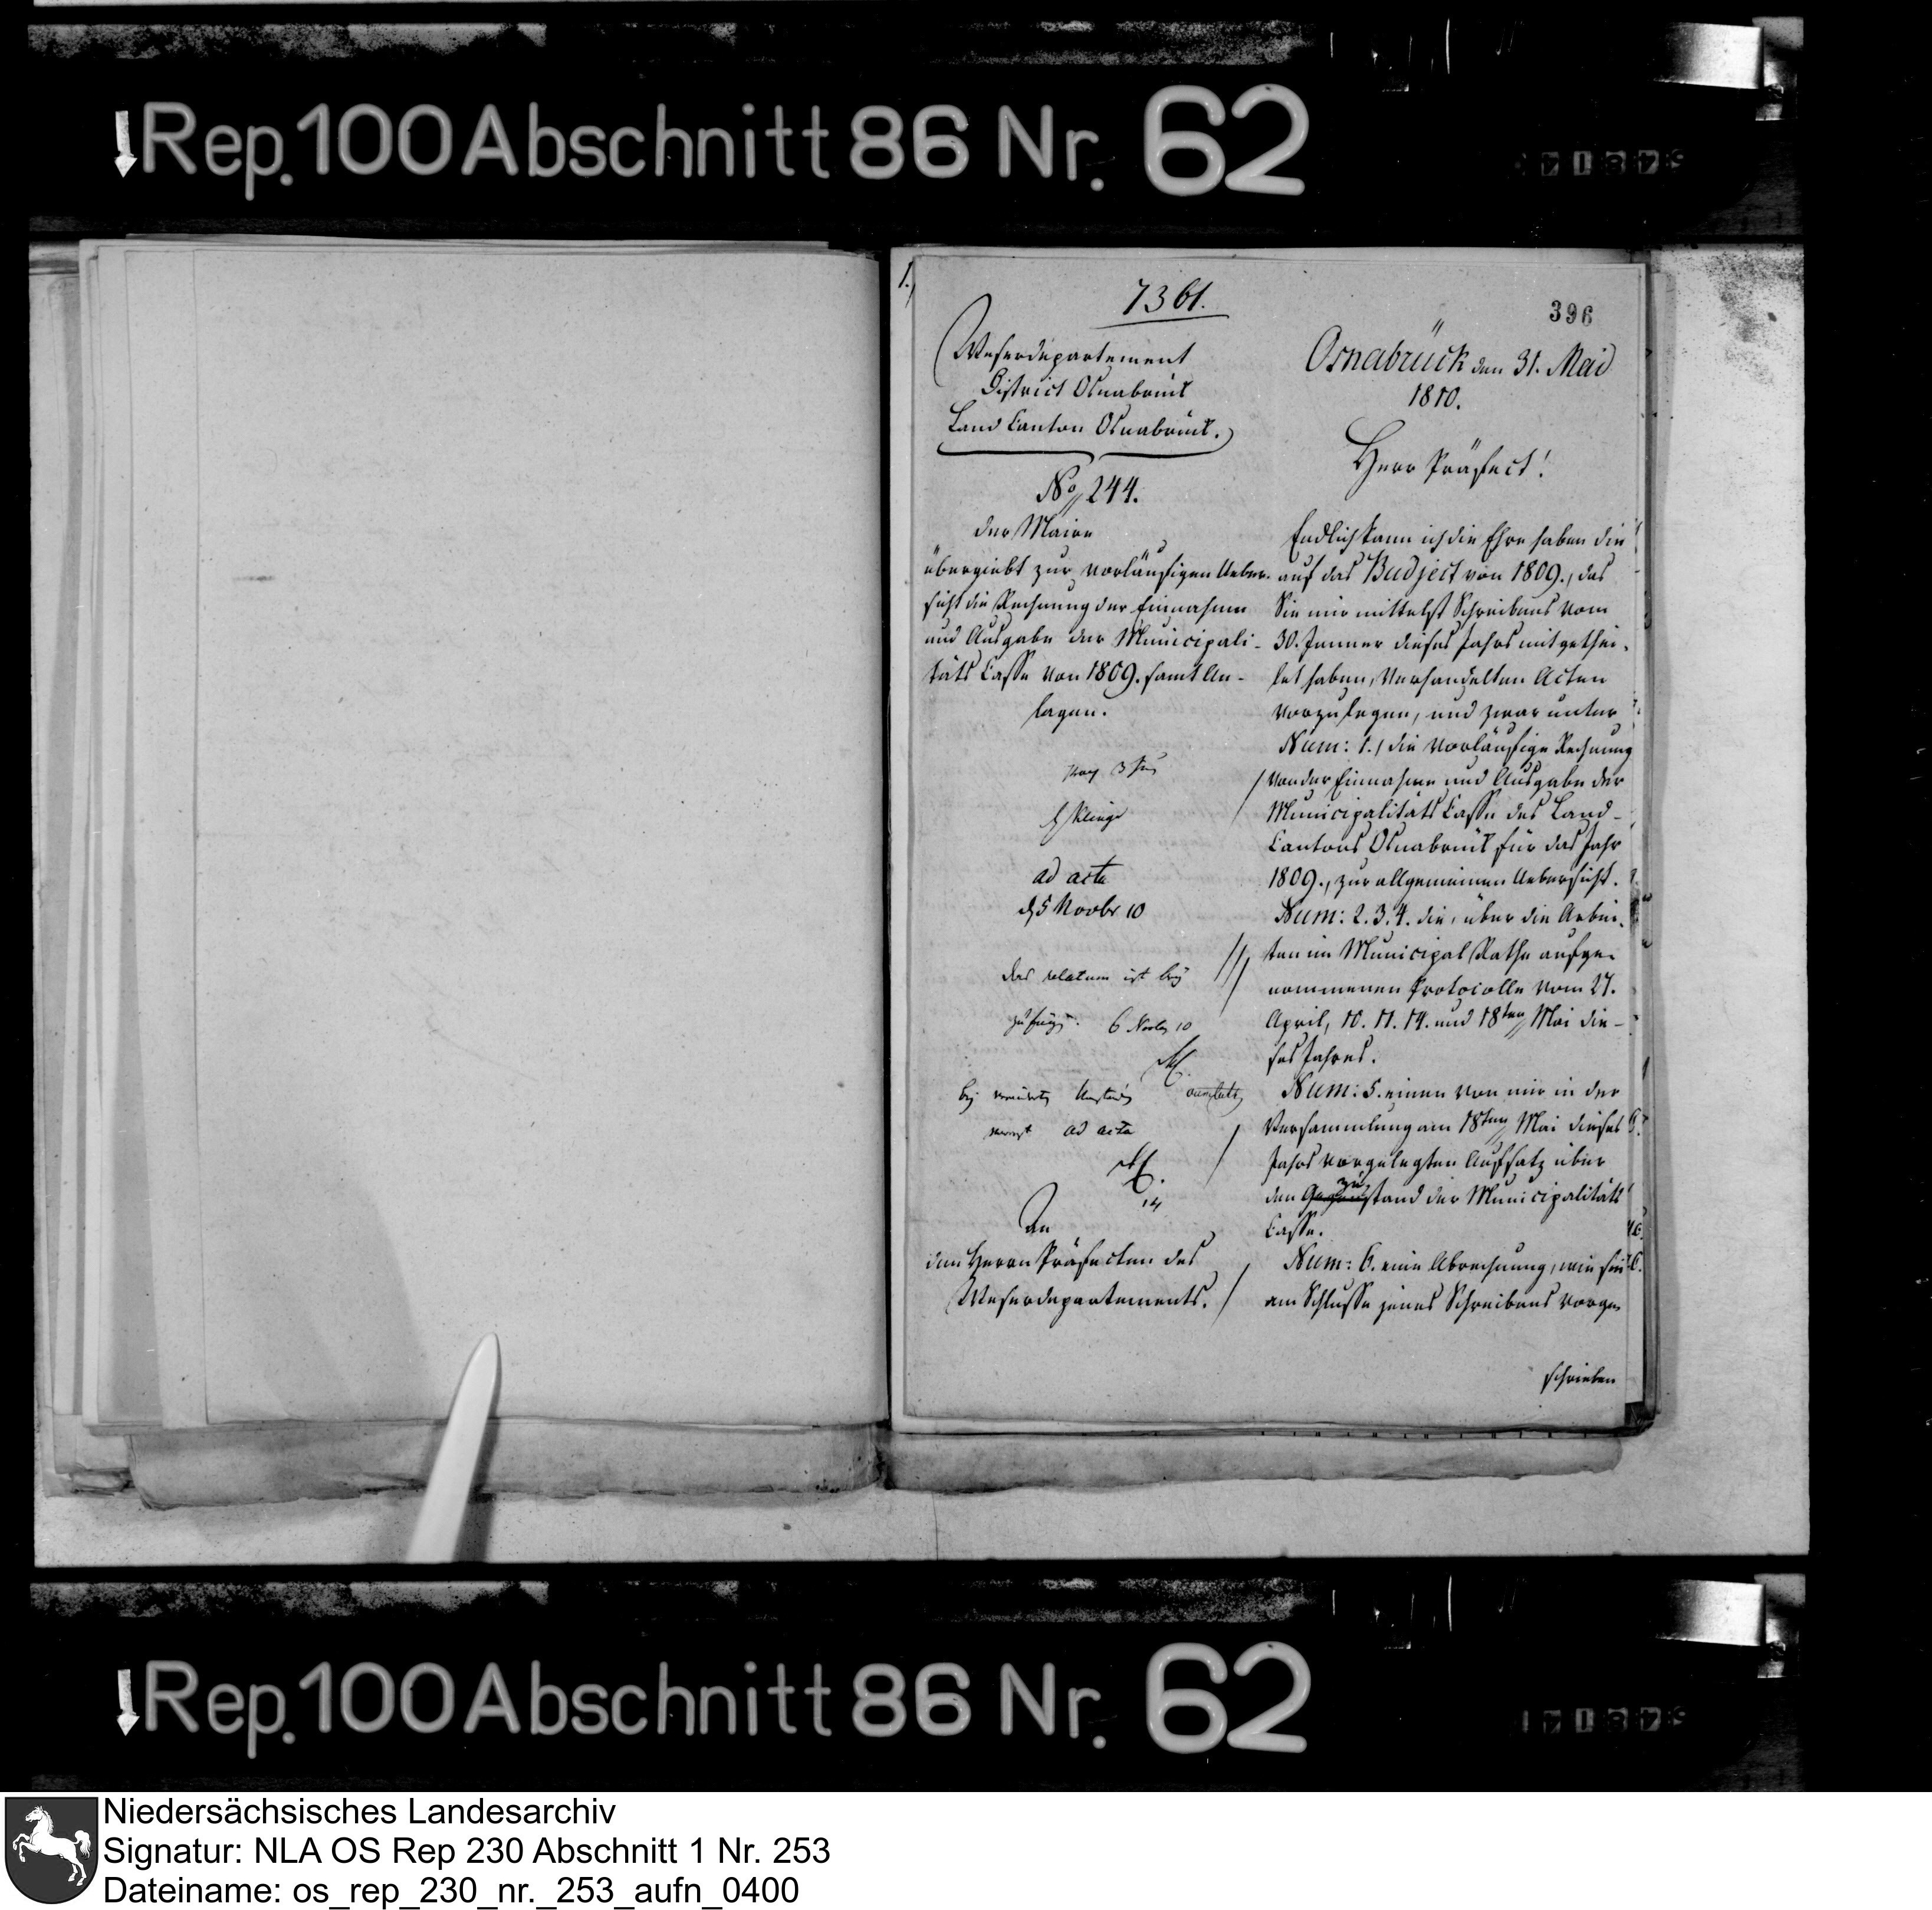 Rep. 100 Abschnitt 86 Nr. 62
1.)
7361.
396
Weserdepartement
District Osnabrück
Land Canton Osnabrück.
No 244.
der Maire
übergiebt zur vorläufigen Ueber-
sicht die Rechnung der Einnahme
und Ausgabe der Municipali-
täts Casse von 1809. samt An-
lagen.
ad acta
d 5 Novbr 10
das relatum ist bey
zufügen. 6 Novbr 10
ad acta
14
An
den Herrn Präfecten des
Weserdepartements.
Osnabrück den 31. Mai
1810.
Herr Präfect!
Endlich kann ich die Ehre haben die
auf das Budject von 1809., das
Sie mir mittelst Schreibens vom
30. Jenner dieses Jahrs mitgethei-
let haben, verhandelten Acten
vorzulegen, und zwar unter
Num: 1., die vorläufige Rechnung
von der Einnahme und Ausgabe der
Municipalitäts Casse des Land-
Cantons Osnabrück für das Jahr
1809., zur allgemeinen Uebersicht.
Num: 2. 3. 4. die, über die Arbei-
ten im Municipal Rathe aufge-
nommenen Protocolle vom 27.
April, 10. 11. 14. und 18ten Mai die-
ses Jahres.
Num: 5. einen von mir in der
Versammlung am 18ten Mai dieses
Jahrs vorgelegten Aufsatz über
den Zustand der Municipalitäts
Casse.
Num: 6. eine Abrechnung, wie sie
am Schlusse jenes Schreibens vorge-
schrieben
Rep. 100 Abschnitt 86 Nr. 62
Niedersächsisches Landesarchiv
Signatur: NLA OS Rep 230 Abschnitt 1 Nr. 253
Dateiname: os_rep_230_nr._253_aufn_0400